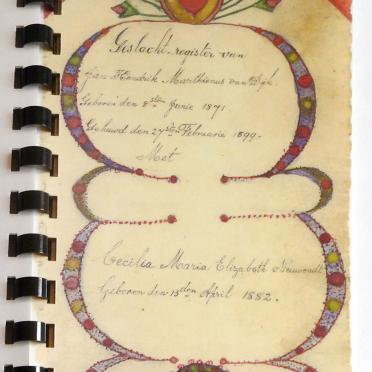 Geslacht-register van
Jan Hendrik Marthienus van Dyk
Geboren den 8sten Junie 1871
Gehuwd den 27ste Februarie 1899-
Met
Cecilia Maria Elizabeth Nieuwoudt
Geboren den 13den April 1882.